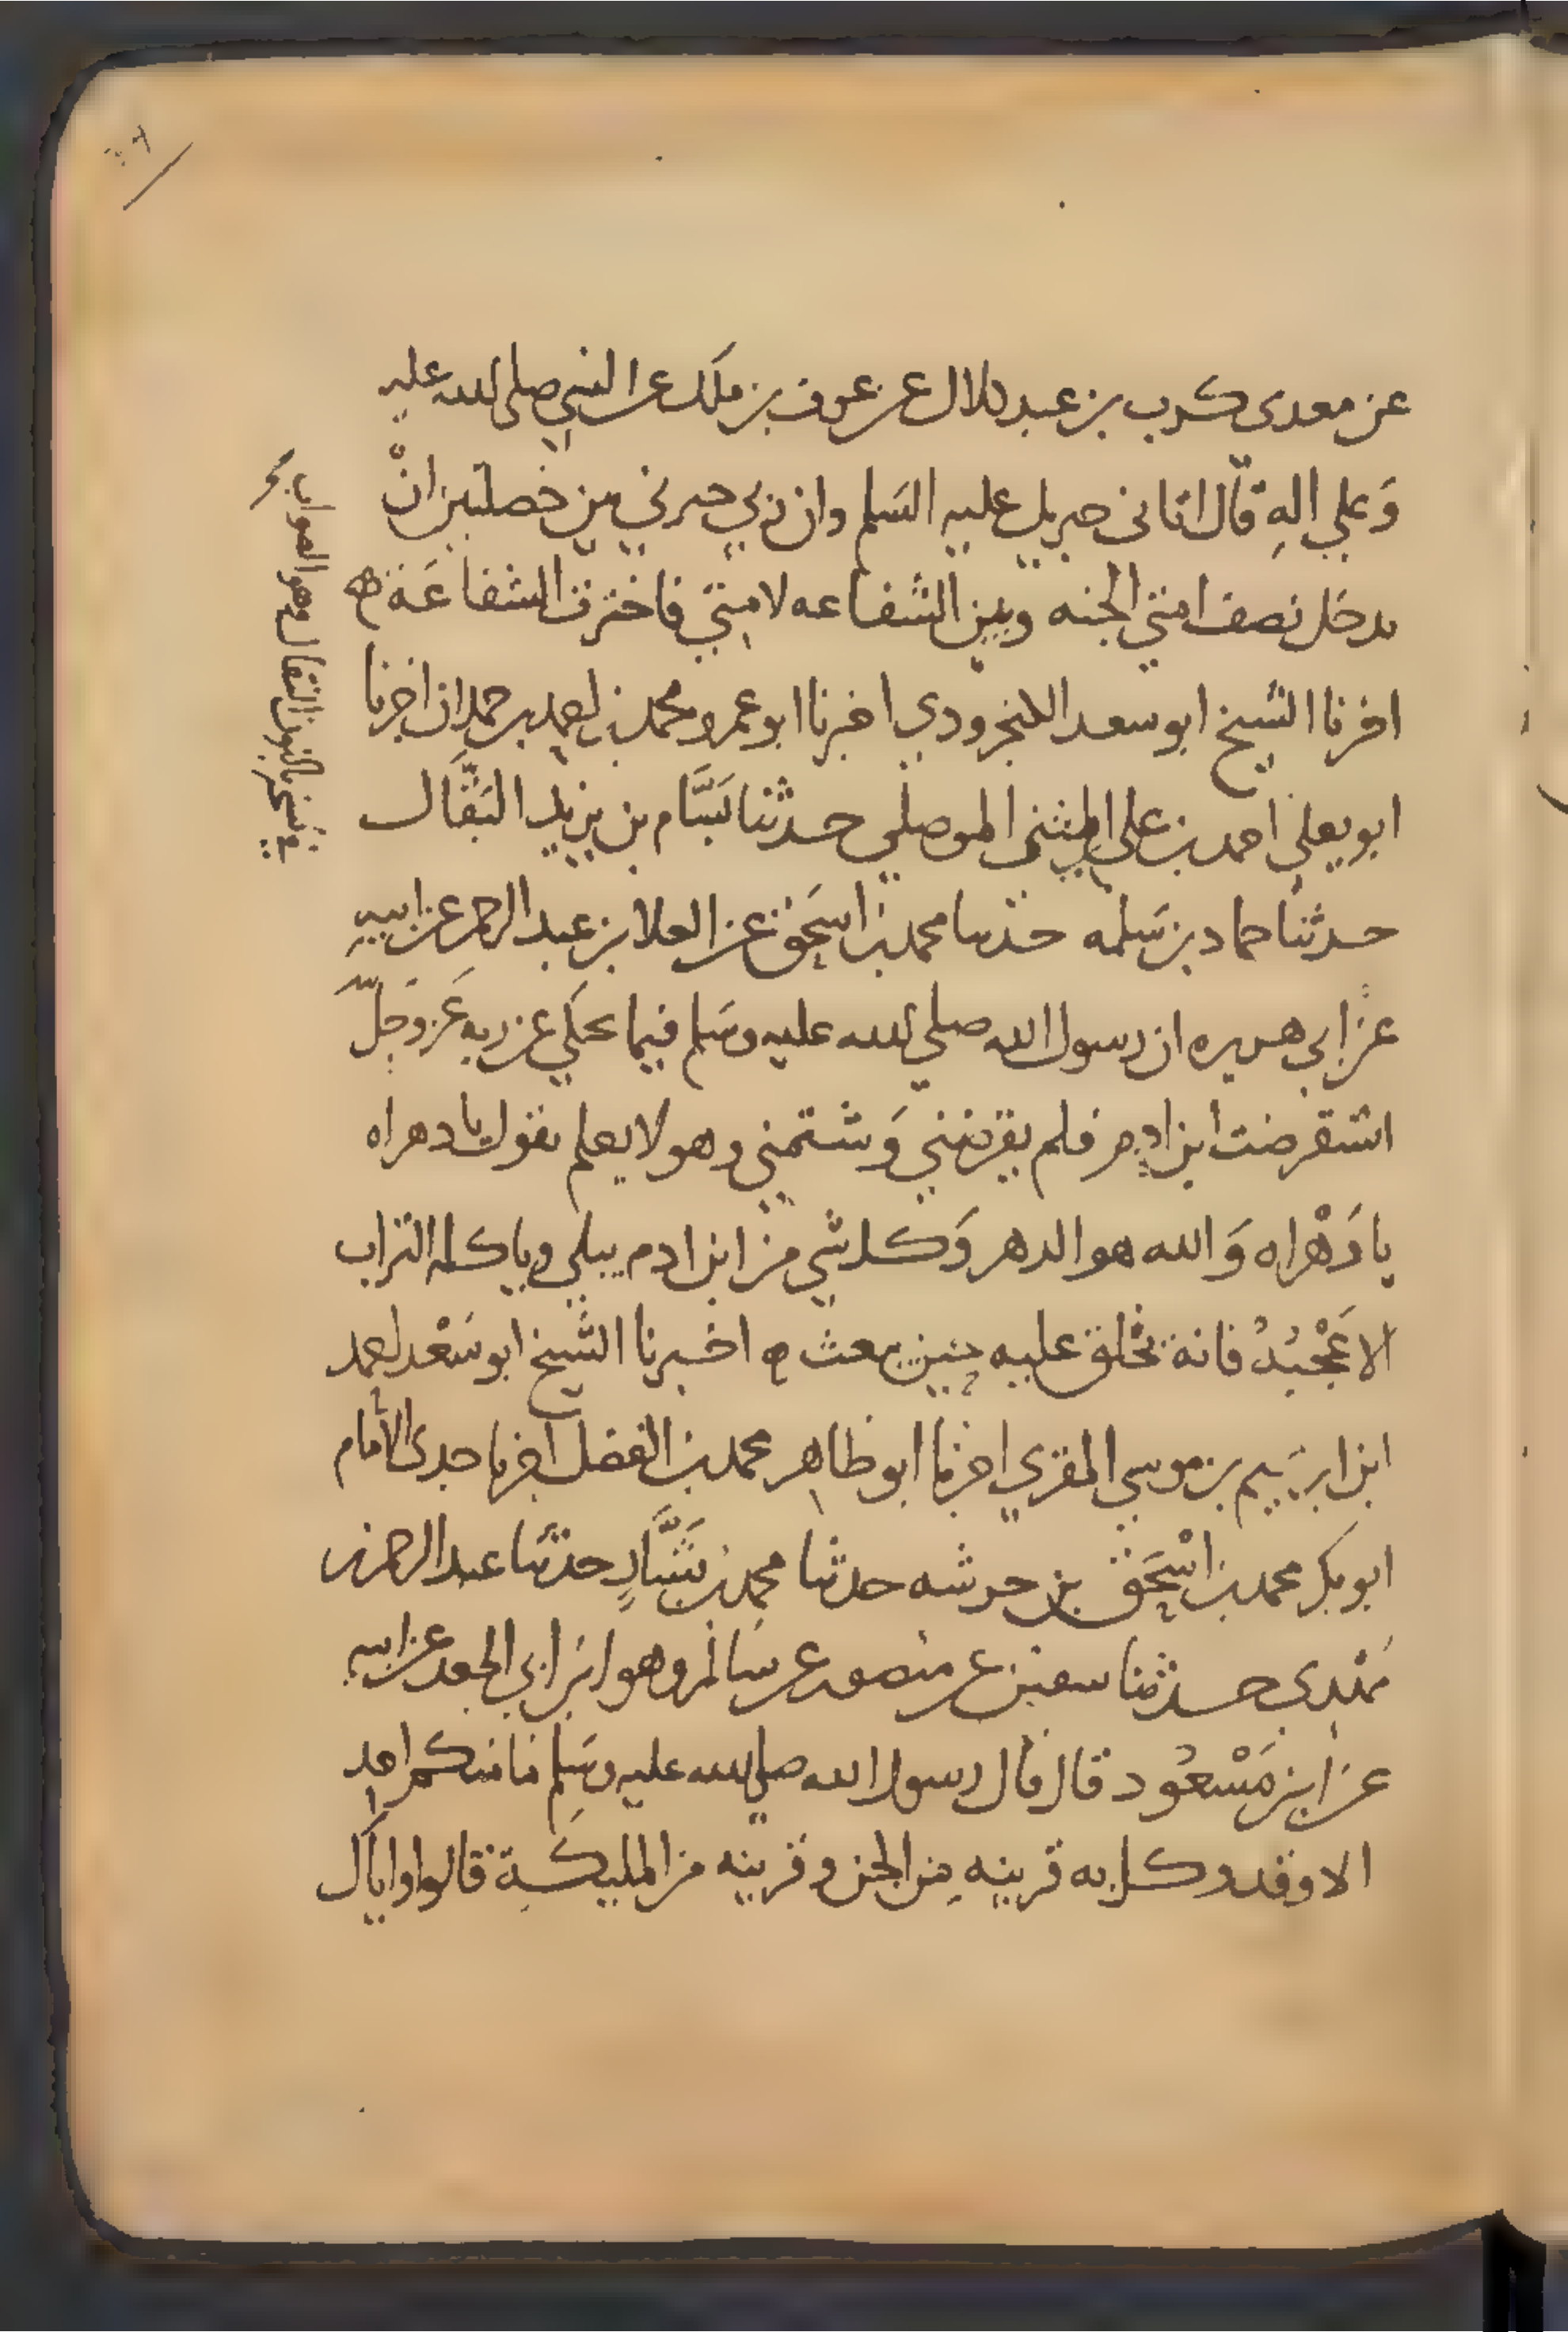 عن معدي كرب بن عبد كلال عن عوف بن ملك عن النبي صلى الله عليه
وَعلي الهِ قال اتاني جبريل عليه السَلم وان ربي خيرني بين خصلتين انْ
يدخل نصف امتي الجنه وبين الشفاعه لامتي فاخترت الشفاعَة ه
اخبرنا الشيخ ابو سعد الكنجرودي اخبرنا ابو عمرو محمد بن احمد بن حمدان اخبرنا
ابو يعلي احمد بن علي المثني الموصلي حدثنا بسَّام بن يزيد النَقَّال
حدثنا حماد بن سَلمه حدثنا محمد بن اسحَق عن العلا بن عبد الرحمن عن ابيهِ
عن ابي هريره ان رسول الله صلي الله عليه وسَلم فيما يحكي عن ربه عَز وَجلّ
استقرضت ابن ادم فلم يقرضني وَشتمني وهو لا يعلم يقول يا دهراه
يا دَهْراه وَالله هو الدهر وَكل شي من ابن ادم يبلي وياكله التراب
الا عَجْبُ ذنبه فانه يخلق عليه حين يبعث ه اخبرنا الشيخ ابو سَعْد احمد
ابن ابرهيم بن موسي المقري اخبرنا ابو طاهر محمد بن الفضل اخبرنا جدي الأمام
ابو بكر محمد بن اسْحَق بن خزيمه حدثنا محمد بن بَشَّارٍ حدثنا عبد الرحمن بن
مَهْدي حدثنا سفين عن منصور عن سَالم وهو ابن ابي الجعد عن ابيه
عن ابن مَسْعُود قال قال رسول الله صلي الله عليه وسَلم ما منكم احد
الا وقد وكل به قرينه مِن الجن وقرينه من المليكَة قالوا واياك
في نسخه بالنون النقال وهو الصواب